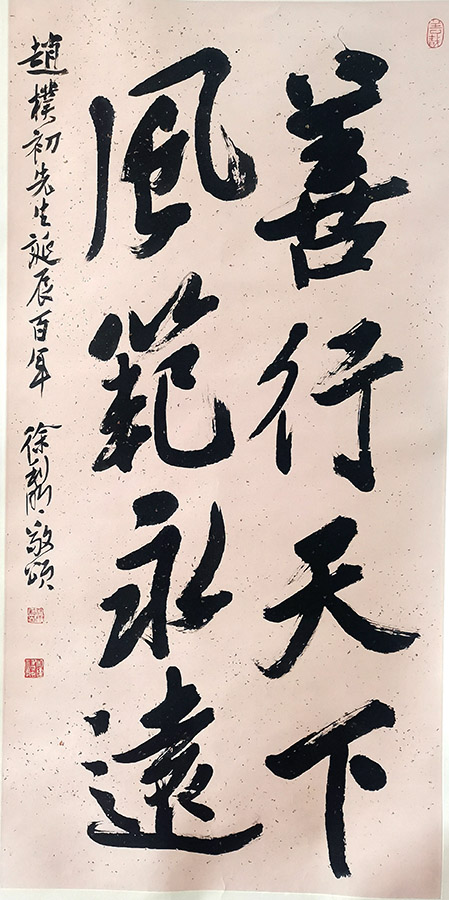 善行天下
風範永遠
趙樸初先生誕辰百年 徐利明敬頌